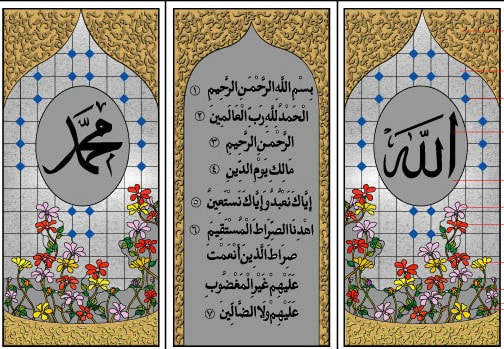 الله
بِسْمِ اللَّهِ الرَّحْمَنِ الرَّحِيمِ ١
الْحَمْدُ لِلَّهِ رَبِّ الْعَالَمِينَ ٢
الرَّحْمَنِ الرَّحِيمِ ٣
مَالِكِ يَوْمِ الدِّينِ ٤
إِيَّاكَ نَعْبُدُ وَإِيَّاكَ نَسْتَعِينُ ٥
اهْدِنَا الصِّرَاطَ الْمُسْتَقِيمَ ٦
صِرَاطَ الَّذِينَ أَنْعَمْتَ
عَلَيْهِمْ غَيْرِ الْمَغْضُوبِ
عَلَيْهِمْ وَلَا الضَّالِّينَ ٧
محمد